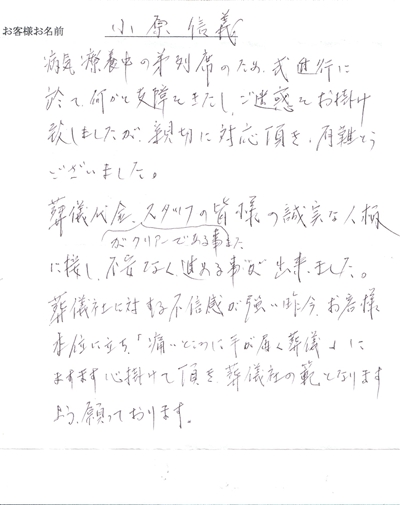 お客様お名前 小原信義
病気療養中の弟列席のため、式進行に
於て、何かと支障をきたし、ご迷惑をお掛け
致しましたが、親切に対応頂き、有難とう
ございました。
葬儀代金、スタッフの皆様の誠実な人柄
がクリアーである事また
に接し、不安なく、進める事が出来ました。
葬儀社に対する不信感が強い昨今、お客様
本位に立ち、「痛いところに手が届く葬儀」に
ますます心掛けて頂き、葬儀社の範となります
よう、願っております。